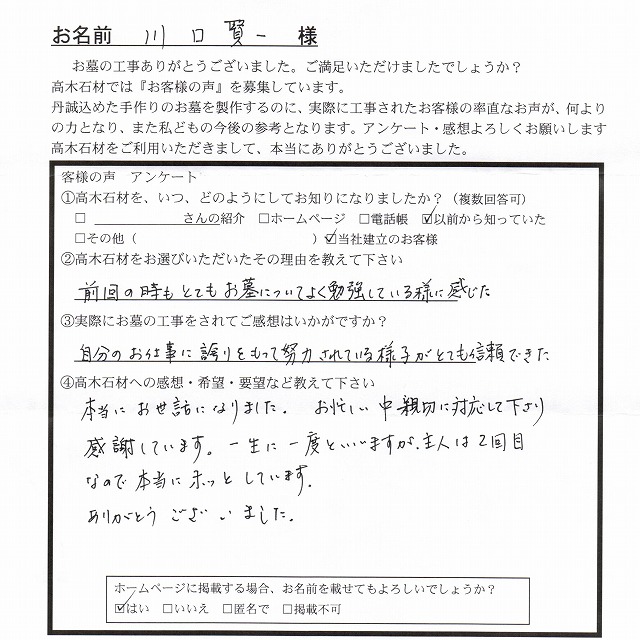 お名前 川口賢一 様
お墓の工事ありがとうございました。ご満足いただけましたでしょうか？
高木石材では『お客様の声』を募集しています。
丹誠込めた手作りのお墓を製作するのに、実際に工事されたお客様の率直なお声が、何より
の力となり、また私どもの今後の参考となります。アンケート・感想よろしくお願いします
高木石材をご利用いただきまして、本当にありがとうございました。
客様の声 アンケート
①高木石材を、いつ、どのようにしてお知りになりましたか？（複数回答可）
□ ＿＿＿＿＿＿さんの紹介 □ホームページ □電話帳 ☑以前から知っていた
□その他（ ）☑当社建立のお客様
②高木石材をお選びいただいたその理由を教えて下さい
前回の時もとてもお墓についてよく勉強している様に感じた
③実際にお墓の工事をされてご感想はいかがですか？
自分のお仕事に誇りをもって努力されている様子がとても信頼できた
④高木石材への感想・希望・要望など教えて下さい
本当にお世話になりました。 お忙しい中親切に対応して下さり
感謝しています。一生に一度といいますが、主人は2回目
なので本当にホッとしています。
ありがとうございました。
ホームページに掲載する場合、お名前を載せてもよろしいでしょうか？
☑はい □いいえ □匿名で □掲載不可